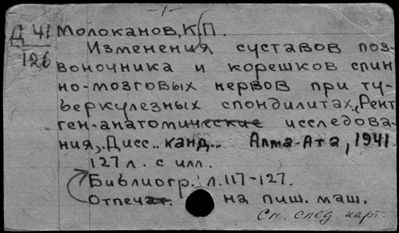 Д 41 Молоканов, К.П.
126 Изменения суставов поз-
воночника и корешков спин-
но-мозговых нервов при ту-
беркулезных спондилитах, Рент-
ген-анатомические исследова-
ния,. Дисс. канд.. Алма-Ата, 1941
127 л. с илл.
Библиогр. л.117-127.
Отпечат. на пиш. маш.
См. след карт.